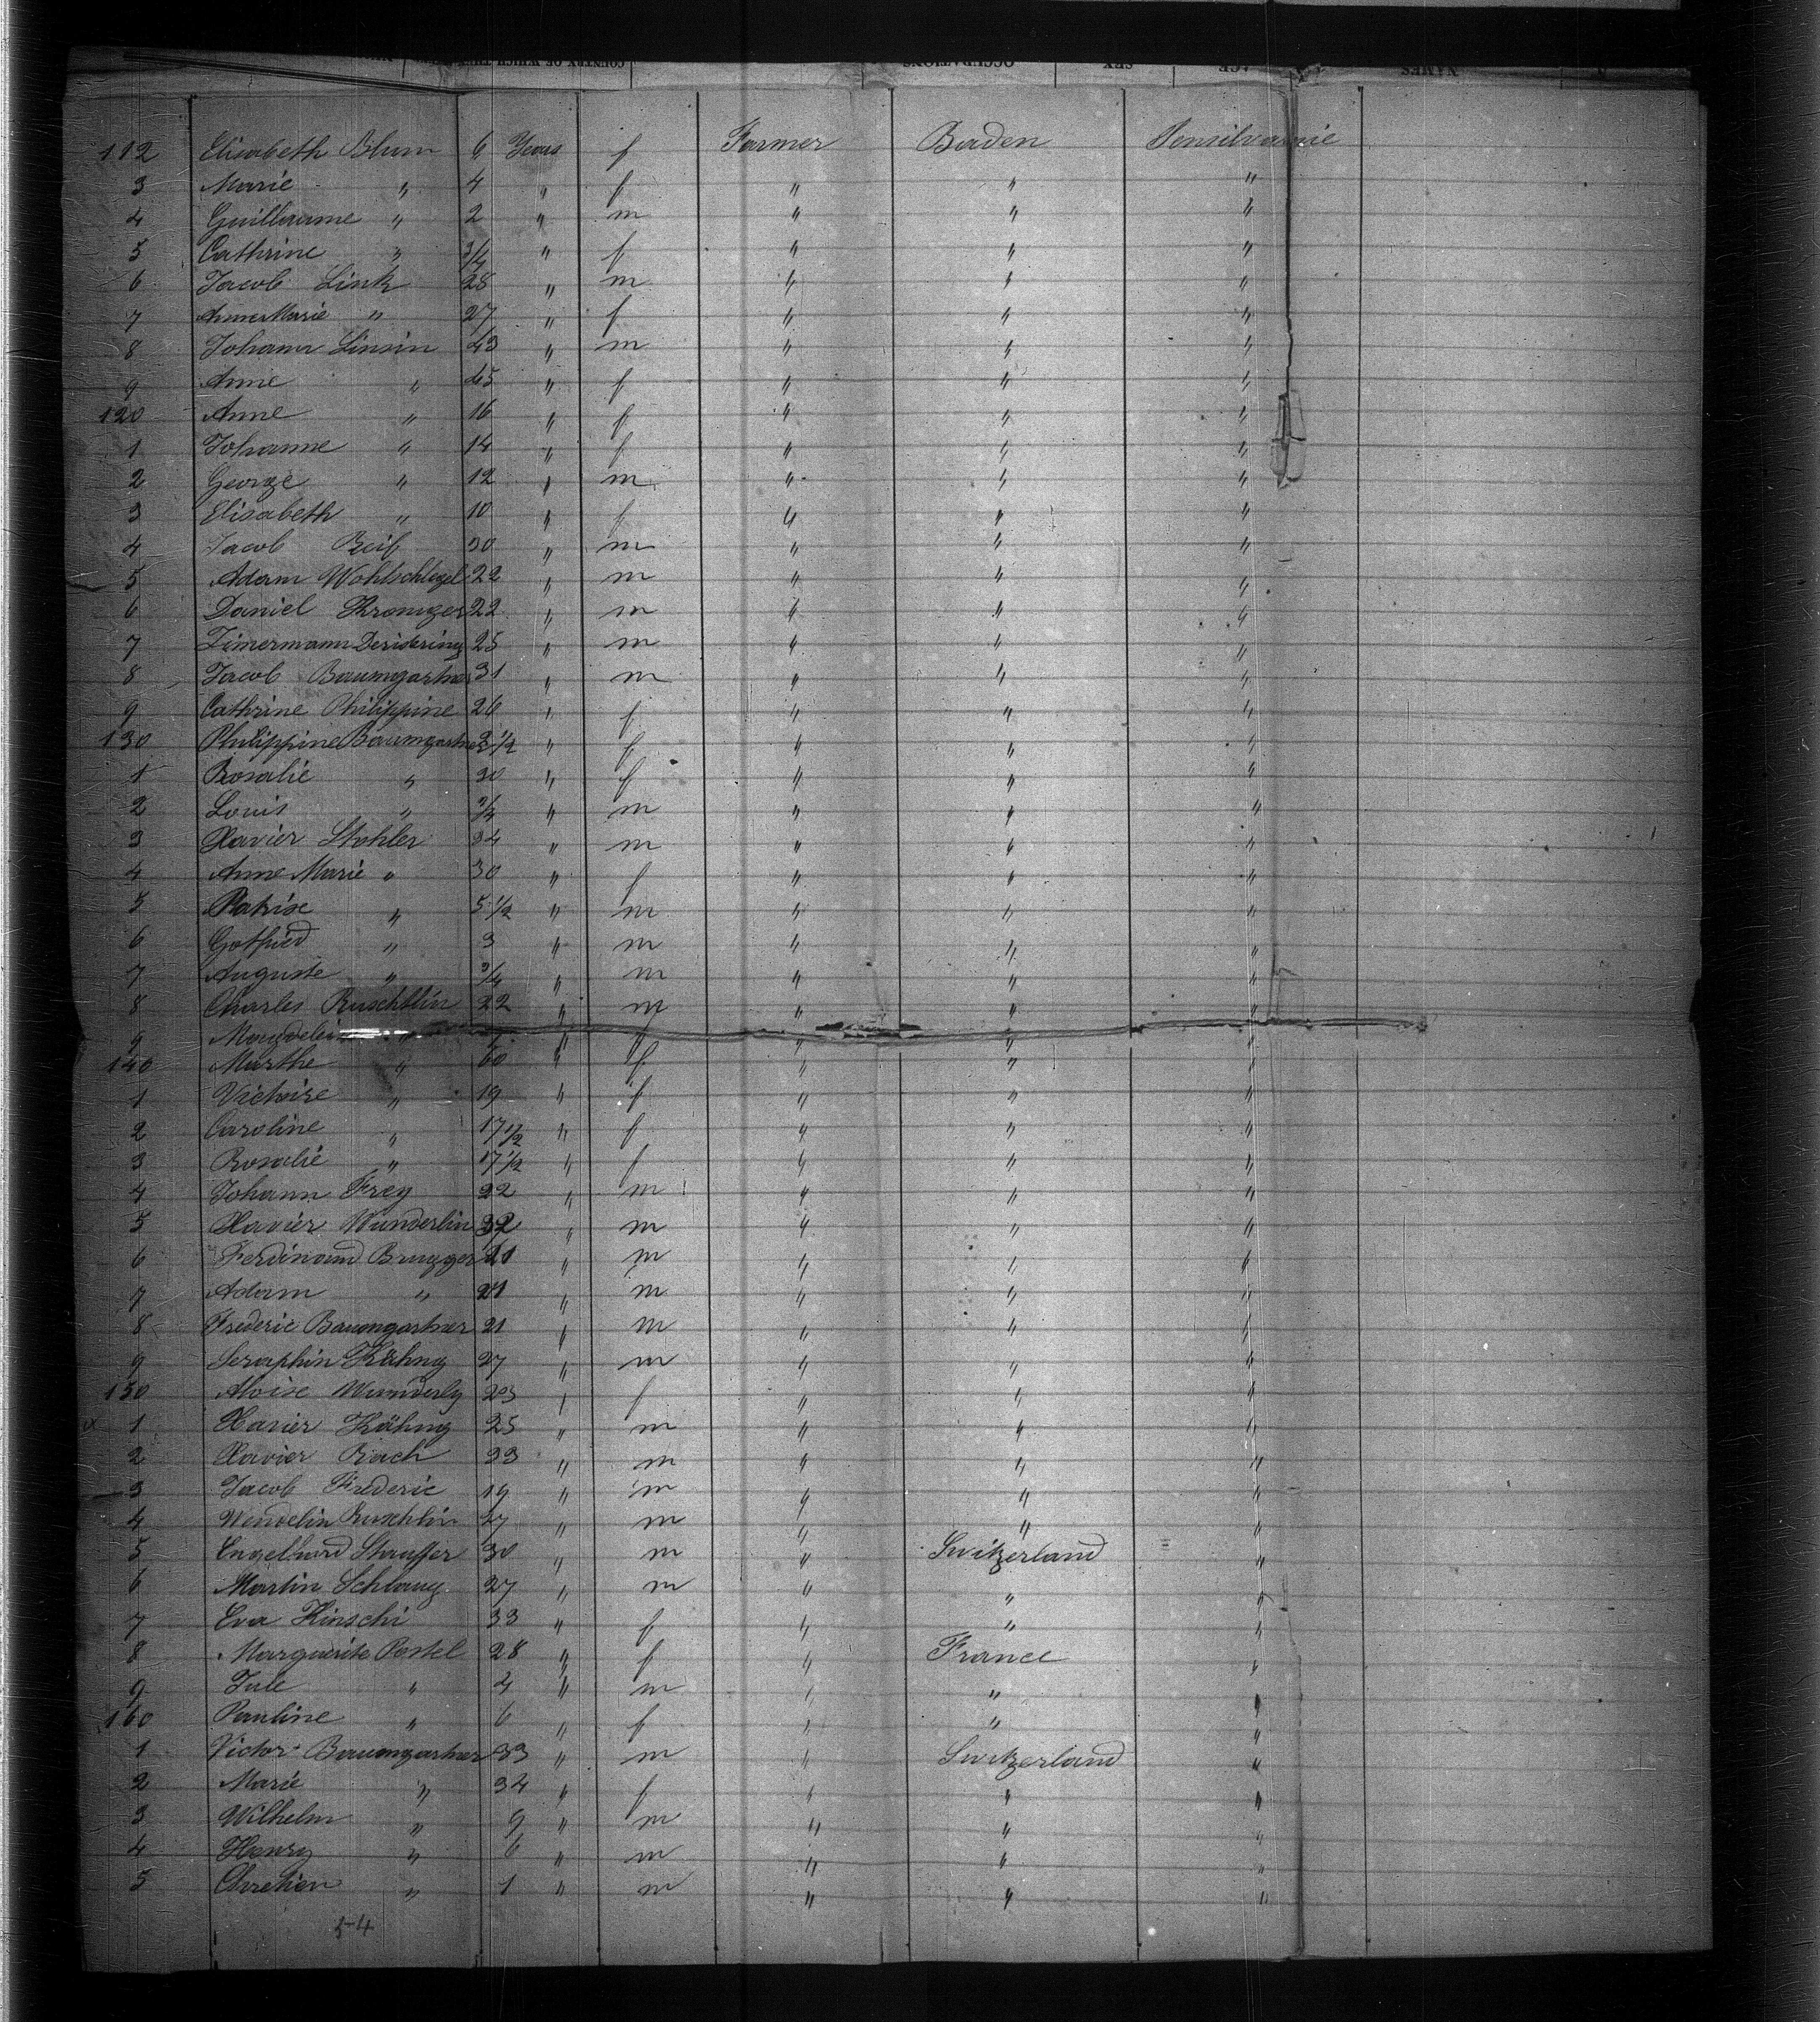 COUNTRY OF WHICH THEY OCCUPATIONS SEX AGE NAMES
112 Elisabeth Blum 6 Years f Farmer Baden Pensilvanie
3 Marie " 4 " f " " "
4 Guillaume " 2 " m " " "
5 Cathrine " 3/4 " f " " "
6 Jacob Link 28 " m " " "
7 Anne Marie " 27 " f " " "
8 Johann Linsin 43 " m " " "
9 Anne " 45 " f " " "
120 Anne " 16 " f " " "
1 Johanne " 14 " f " " "
2 George " 12 " m " " "
3 Elisabeth " 10 " f " " "
4 Jacob Reif 30 " m " " "
5 Adam Wohlschlegel 22 " m " " "
6 Daniel 22 " m " " "
7 Zimermann 25 " m " " "
8 Jacob Baumgartner 31 " m " " "
9 Cathrine Philippine 26 " f " " "
130 Philippine Baumgartner 2 1/2 " f " " "
1 Rosalie " 30 " f " " "
2 Louis " 3/4 " m " " "
3 Xavier Stohler 34 " m " " "
4 Anne Marie " 30 " f " " "
5 Patrise " 5 1/2 " m " " "
6 Gotfried " 3 " m " " "
7 Auguste " 3/4 " m " " "
8 Charles Ruschtlin 22 " m " " "
9 " " f " " "
140 Marthe " 60 " f " " "
1 Victoire " 19 " f " " "
2 Caroline " 17 1/2 " f " " "
3 Rosalie " 17 1/2 " f " " "
4 Johann Frey 22 " m " " "
5 Xavier Wunderlin 32 " m " " "
6 Ferdinand Brugger 21 " m " " "
7 Adam " 21 " m " " "
8 Frederic Baumgartner 21 " m " " "
9 Seraphin Kähny 27 " m " " "
150 Aloise Wunderly 23 " f " " "
1 Xavier Kähny 25 " m " " "
2 Xavier Rach 33 " m " " "
3 Jacob Frederic 19 " m " " "
4 Wendelin Ruschlin 27 " m " " "
5 Engelhard Stauffer 30 " m " Switzerland "
6 Martin Schlaug 27 " m " " "
7 Eva Hirschi 33 " f " " "
8 Marguerite Postel 28 " f " France "
9 Jule " 4 " m " " "
160 Pauline " 6 " f " " "
1 Victor Baumgartner 33 " m " Switzerland "
2 Marie " 34 " f " " "
3 Wilhelm " 9 " m " " "
4 Henry " 6 " m " " "
5 Chretien " 1 " m " " "
54